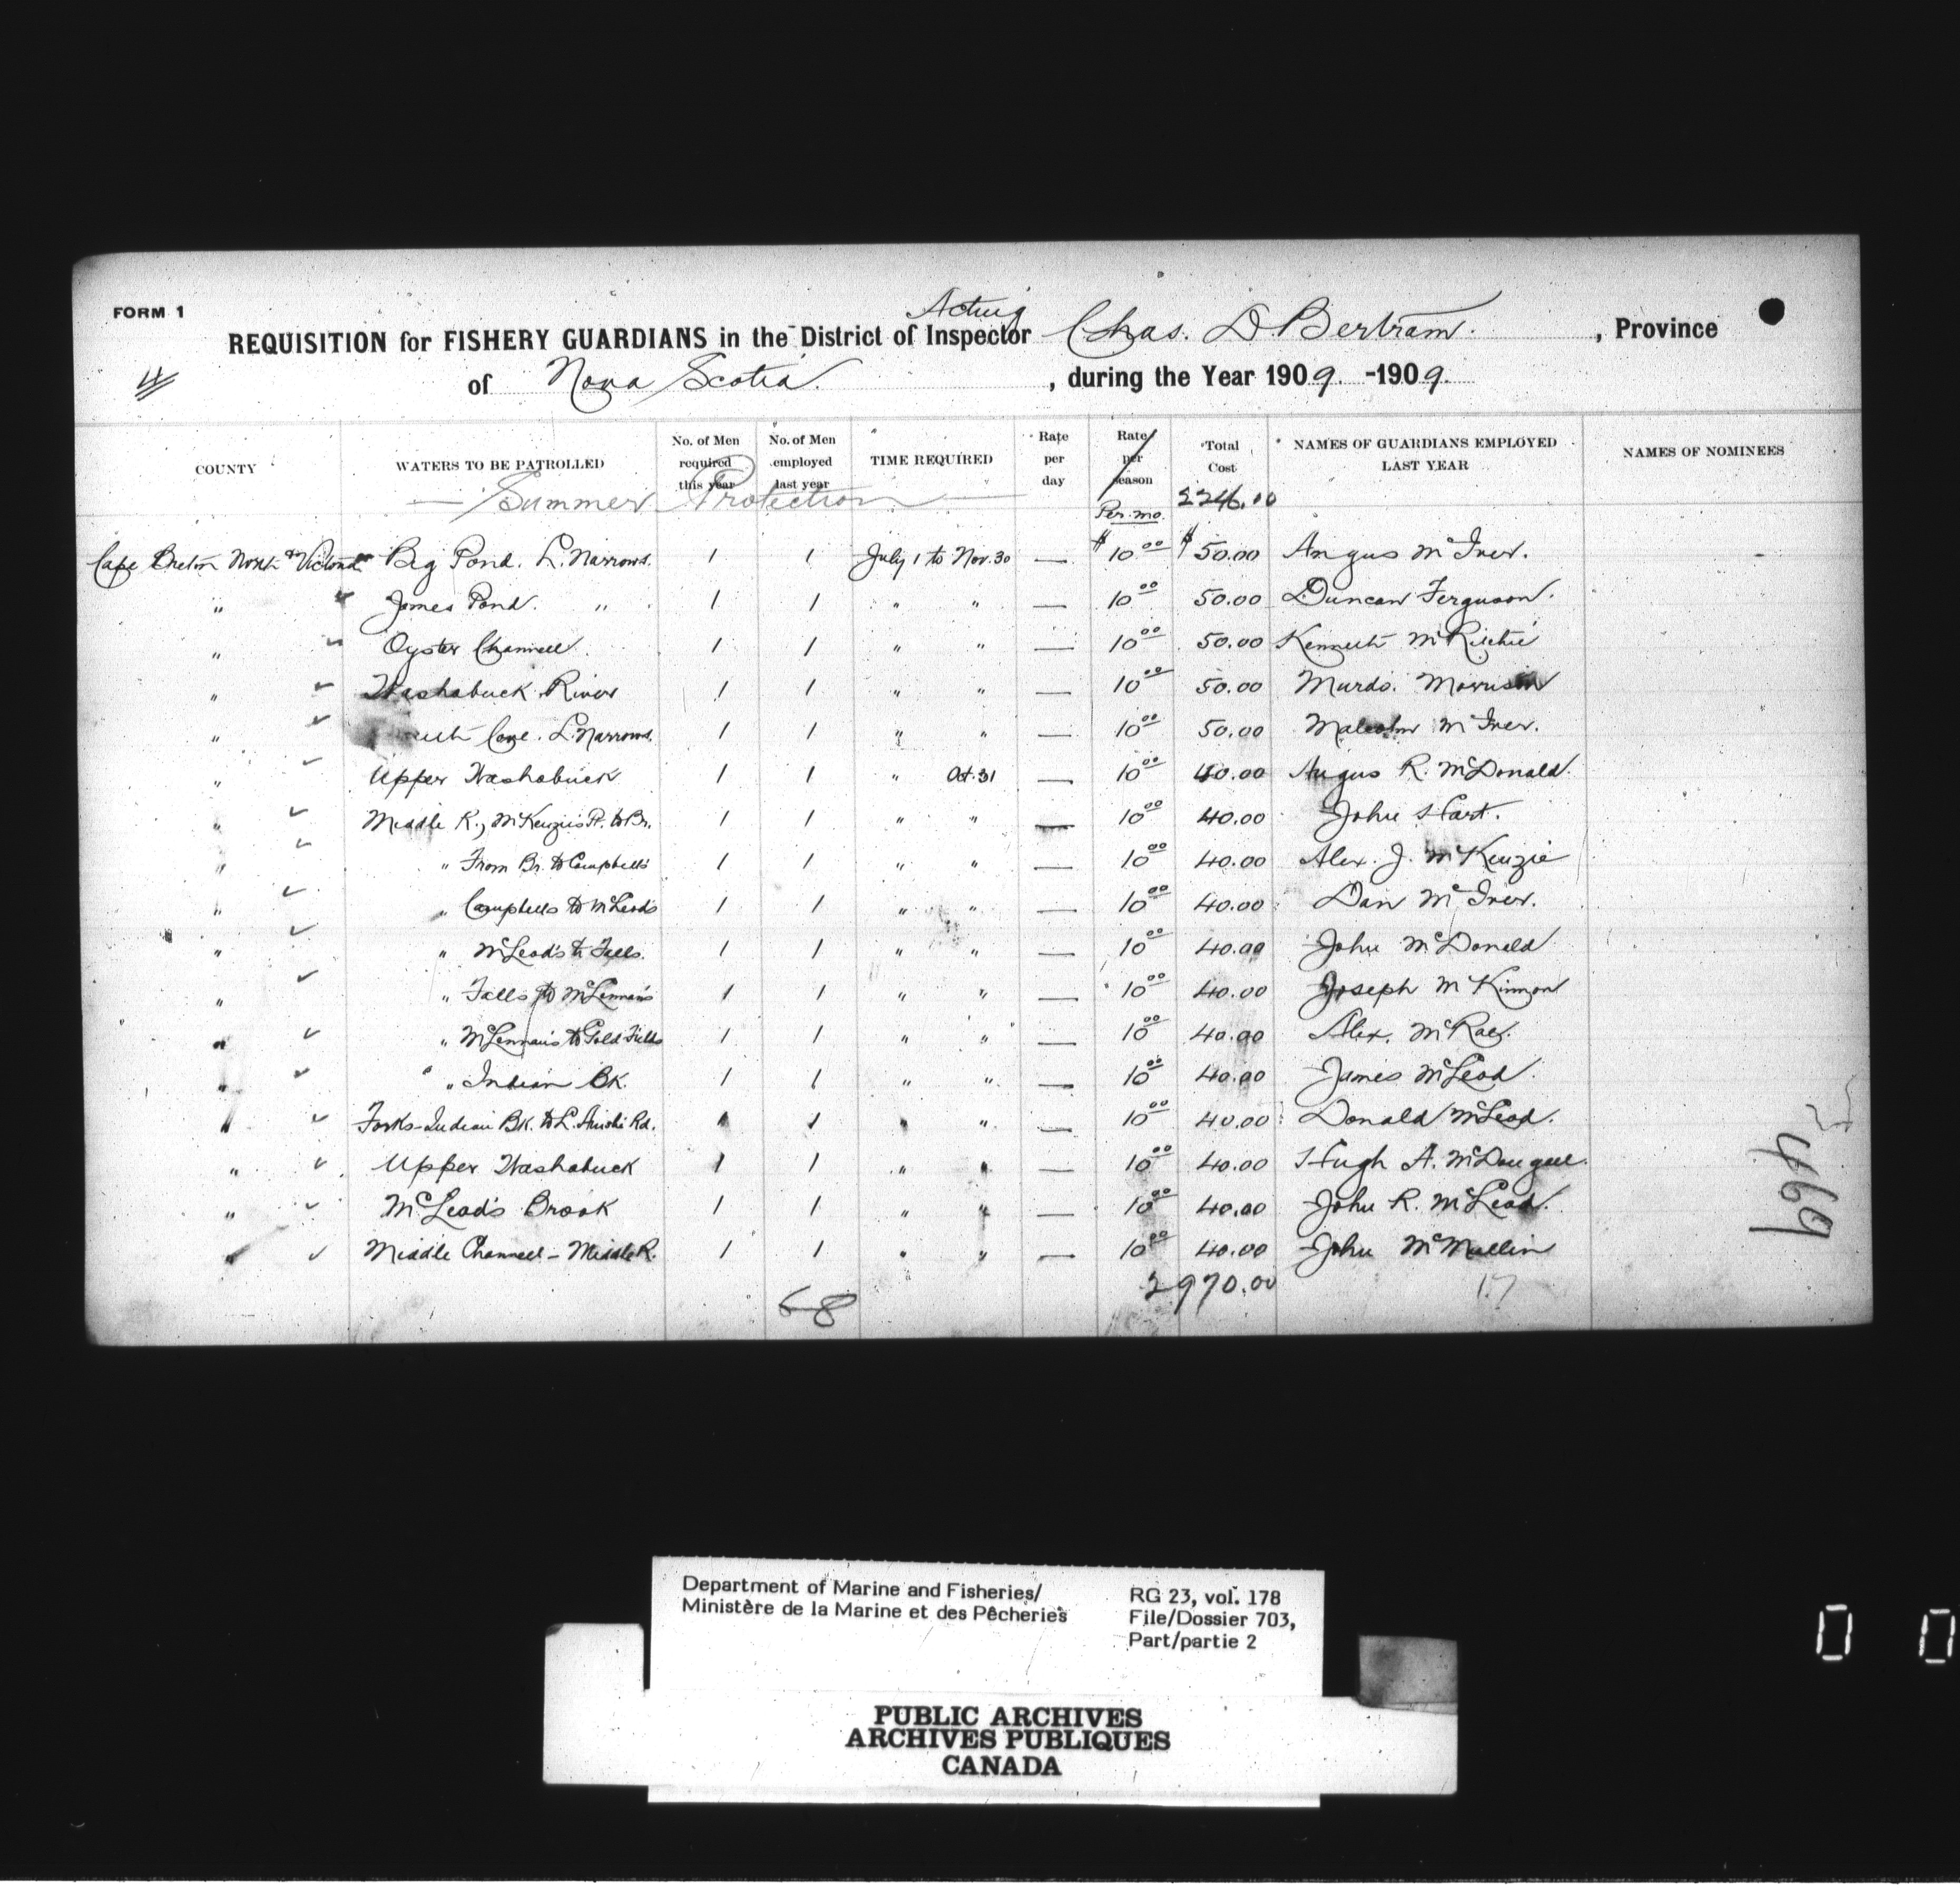 FORM 1
Acting
REQUISITION for FISHERY GUARDIANS in the District of Inspector Chas. D. Bertram. , Province
4 of Nova Scotia. , during the Year 1909. -1909.
COUNTY WATERS TO BE PATROLLED No. of Men required this year No. of Men employed last year TIME REQUIRED Rate per day Rate per season Total Cost NAMES OF GUARDIANS EMPLOYED LAST YEAR NAMES OF NOMINEES
— Summer Protection — Per mo. 2246.00
Cape Breton North & Victoria Big Pond. L. Narrows. 1 1 July 1 to Nov. 30 — $10 00 $50.00 Angus McIver.
" " James Pond. " 1 1 " " — 10 00 50.00 Duncan Ferguson.
" " Oyster Channell. 1 1 " " — 10 00 50.00 Kenneth McRitchie
" Washabuck River 1 1 " " — 10 00 50.00 Murdo. Morrison
" Cove. L. Narrows. 1 1 " " — 10 00 50.00 Malcolm McIver.
" Upper Washabuck 1 1 " Oct. 31 — 10 00 40.00 Angus R. McDonald.
" Middle R., McKenzie's Pt. to Br. 1 1 " " — 10 00 40.00 John Hart.
" " From Br. to Campbell's 1 1 " " — 10 00 40.00 Alex. J. McKenzie
" " Campbells to McLeod's 1 1 " " — 10 00 40.00 Dan McIver.
" " McLeod's to Falls. 1 1 " " — 10 00 40.00 John McDonald
" " Falls to McLennan's 1 1 " " — 10 00 40.00 Joseph McKinnon
" " McLennan's to Gold Fields 1 1 " " — 10 00 40.00 Alex. McRae.
" " Indian Bk. 1 1 " " — 10 00 40.00 James McLeod.
" Forks-Indian Bk. to L. Ainslie Rd. 1 1 " " — 10 00 40.00 Donald McLeod.
" Upper Washabuck 1 1 " " — 10 00 40.00 Hugh A. McDougall.
" McLeod's Brook 1 1 " " — 10 00 40.00 John R. McLeod.
" Middle Channell - Middle R. 1 1 " " — 10 00 40.00 John McMullin
68 2970.00 17
469
Department of Marine and Fisheries/
Ministère de la Marine et des Pêcheries
RG 23, vol. 178
File/Dossier 703,
Part/partie 2
PUBLIC ARCHIVES
ARCHIVES PUBLIQUES
CANADA
0 0